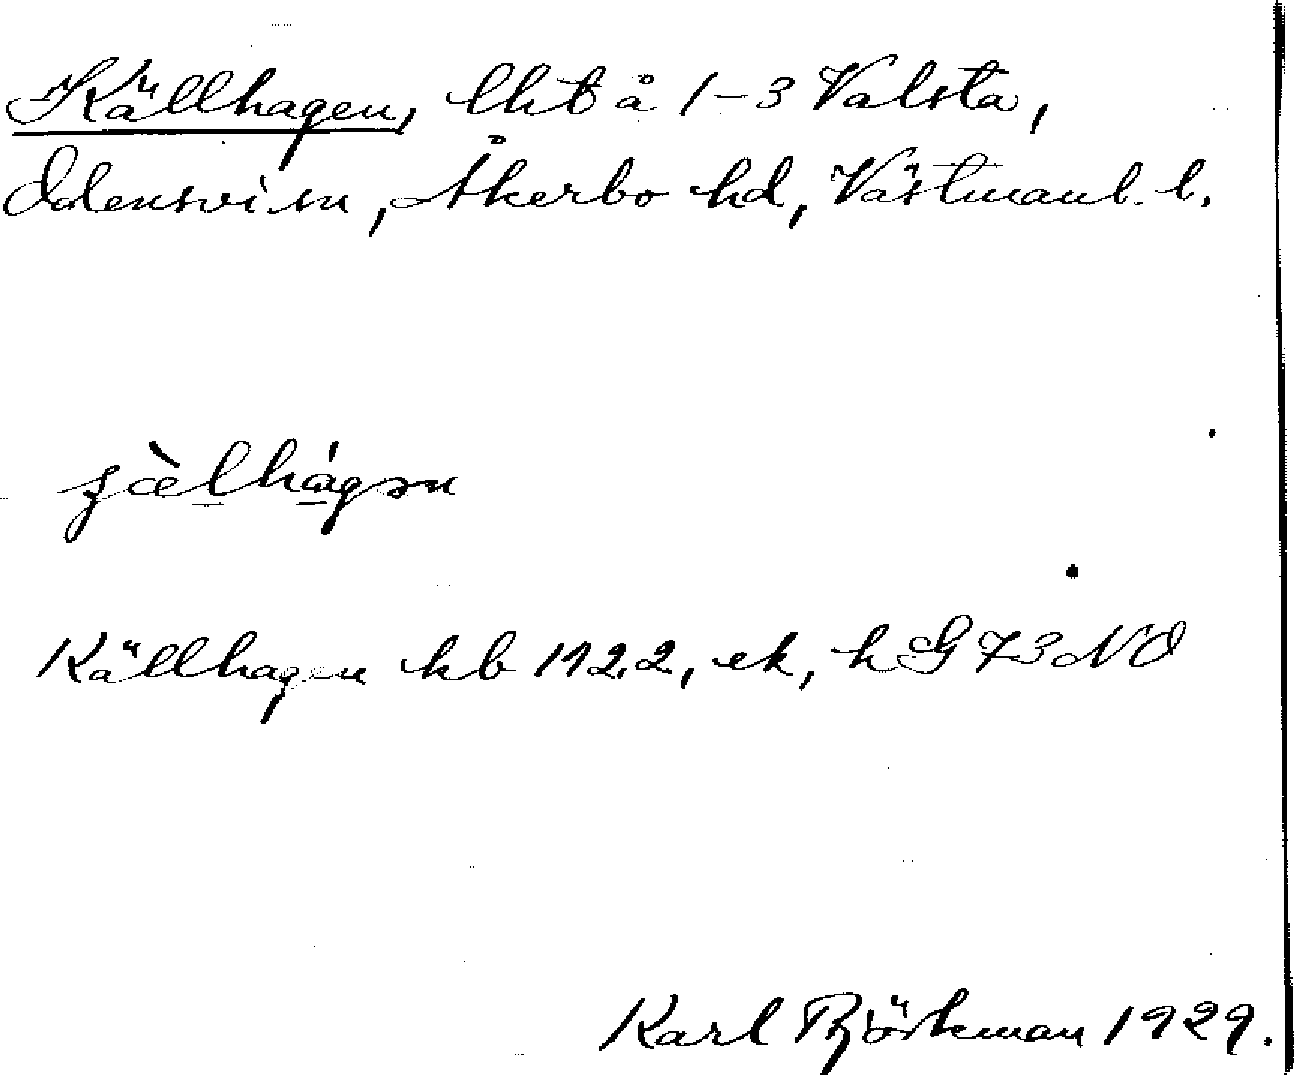 Källhagen, lht å 1-3 Valsta,
Odensvi sn, Åkerbo hd, Västmanl. l.
Källhagen hb 112.2, ek, h G 73 NO
Karl Björkman 1929.